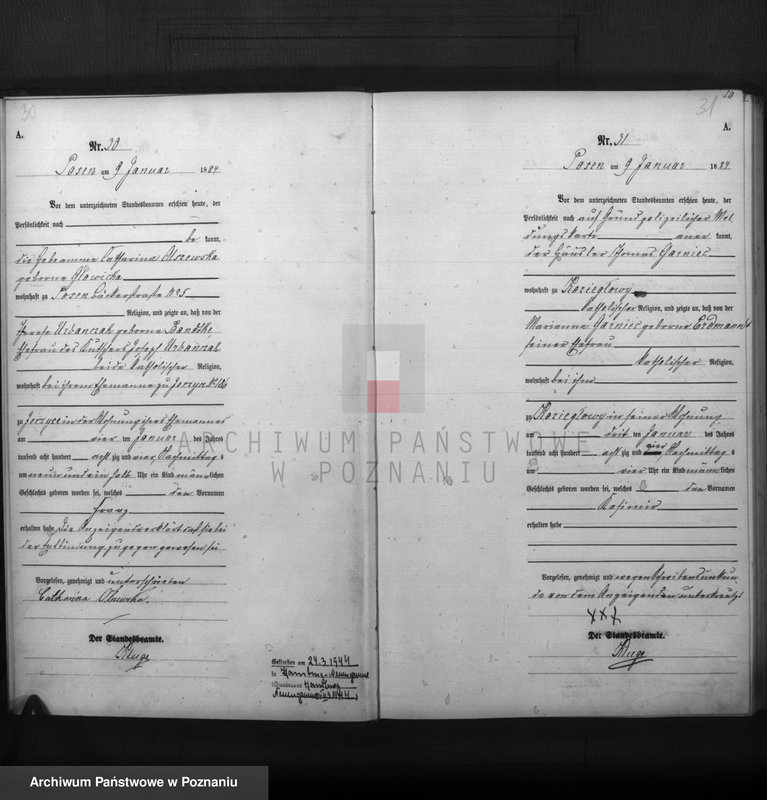 30
A.
Nr. 30
Posen am 9 Januar 1884
Vor dem unterzeichneten Standesbeamten erschien heute, der
Persönlichkeit nach
be kannt,
die Hebeamme Catharina Olszewska
geborne Glowicka
wohnhaft zu Posen Bäckerstraße No 5
Religion, und zeigte an, daß von der
Urbanczak geborne
Ehefrau des Kutschers Josef Urbanczak
beide katholischer Religion,
wohnhaft bei ihrem Ehemanne zu Jerzyce
zu Jerzyce in der Wohnung ihres Ehemannes
am vier ten Januar des Jahres
tausend acht hundert acht zig und vier, Nachmittag s
um neun und ein halb Uhr ein Kind männlichen
Geschlechts geboren worden sei, welches den Vornamen
Franz
erhalten habe. Die Anzeigende erklärt daß sie bei
der Entbindung zugegen gewesen sei
Vorgelesen, genehmigt und unterschrieben
Catharina
Der Standesbeamte.
Kluge
Gestorben am 24.3.1944
in Hamburg-Neuengamme
Standesamt Hamburg
Neuengamme
16
31
A.
Nr. 31
Posen am 9 Januar 1884
Vor dem unterzeichneten Standesbeamten erschien heute, der
Persönlichkeit nach auf Grund polizeilicher Mel
dungskarte aner kannt,
der Häusler Thomas Garniec
wohnhaft zu Kozieglowy
katholischer Religion, und zeigte an, daß von der
Marianna Garniec geborne Erdmann
seiner Ehefrau
katholischer Religion,
wohnhaft bei ihm
zu Kozieglowy in seiner Wohnung
am drit ten Januar des Jahres
tausend acht hundert acht zig und vier Nachmittag s
um vier Uhr ein Kind männlichen
Geschlechts geboren worden sei, welches den Vornamen
Kasimir
erhalten habe
Vorgelesen, genehmigt und wegen Schreibensunkun
de von dem Anzeigenden unterkreuzt
XXX
Der Standesbeamte.
Kluge
ARCHIWUM PAŃSTWOWE
W POZNANIU
Archiwum Państwowe w Poznaniu